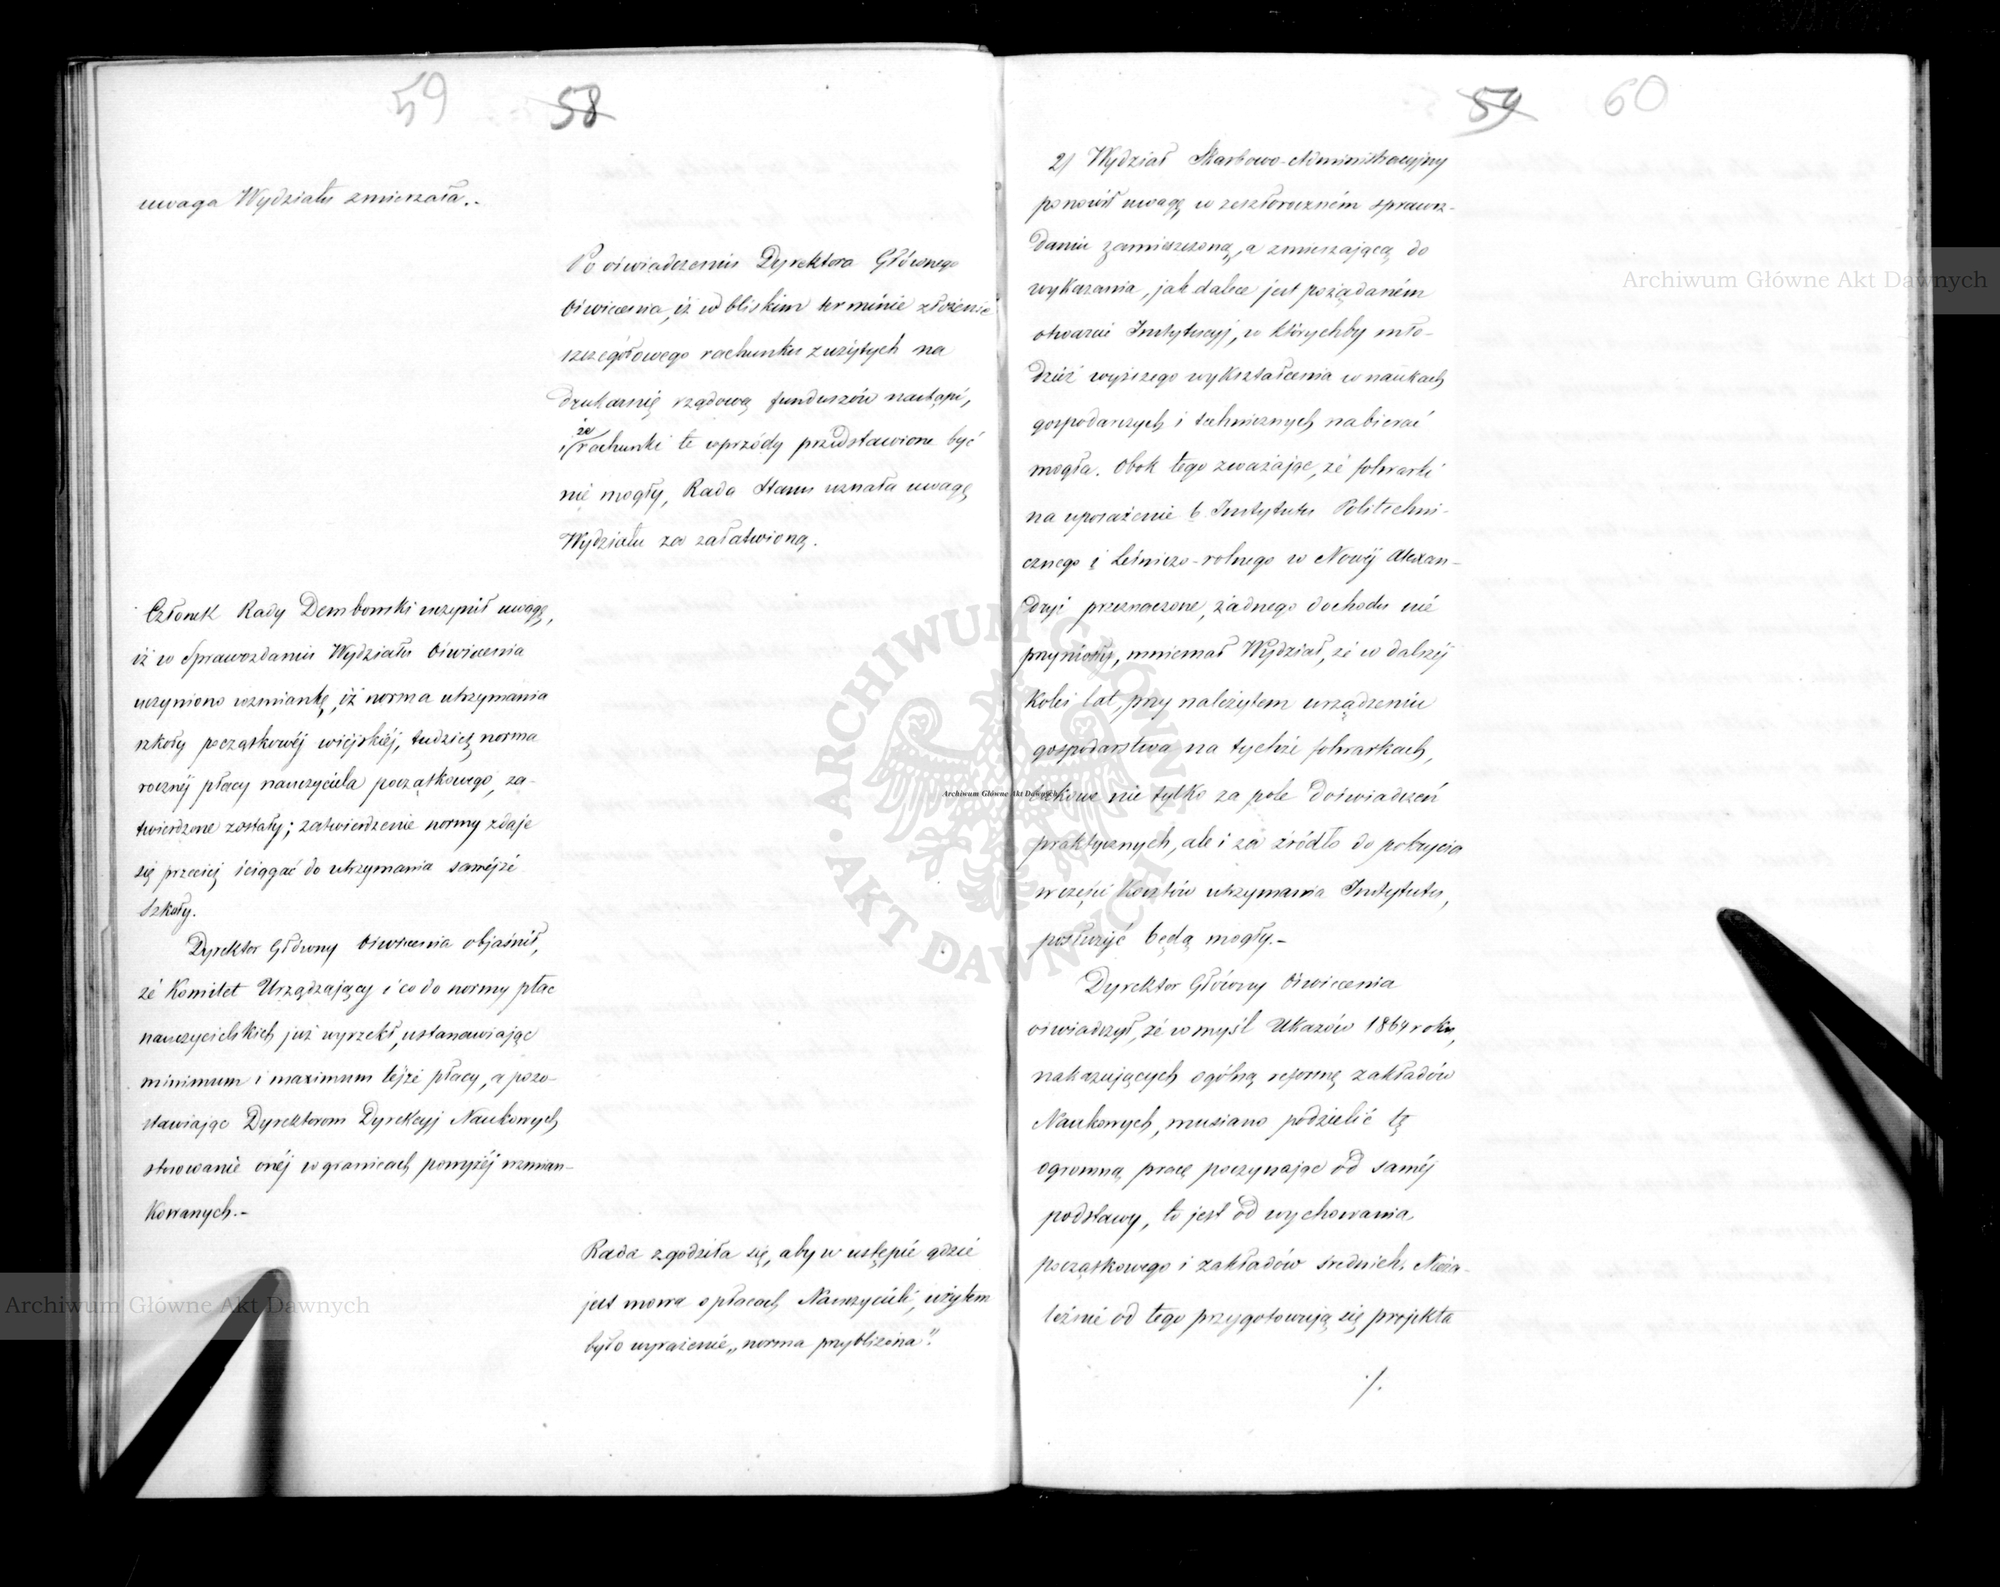 59 58
uwaga Wydziału zmierzała.-
Po oświadczeniu Dyrektora Głównego
Oświecenia, iż w bliskim terminie złożenie
szczegółowego rachunku zużytych na
drukarnię rządową funduszów nastąpi,
i że rachunki te wprzódy przedstawione być
nie mogły, Rada Stanu uznała uwagę
Wydziału za załatwioną.
Członek Rady Dembowski uczynił uwagę,
iż w Sprawozdaniu Wydziału Oświecenia
uczyniono wzmiankę, iż norma utrzymania
szkoły początkowéj wiejskiéj, tudzież norma
rocznéj płacy nauczyciela początkowego, za-
twierdzone zostały; zatwierdzenie normy zdaje
się przecież ściągać do utrzymania saméjże
Szkoły.
Dyrektor Główny Oświecenia objaśnił,
że Komitet Urządzający i co do normy płac
nauczycielskich już wyrzekł, ustanawiając
minimum i maximum téjże płacy, a pozo-
stawiając Dyrektorom Dyrekcyj Naukowych
stosowanie onéj w granicach powyżéj wzmian-
kowanych.-
Rada zgodziła się, aby w ustępie gdzie
jest mowa o płacach Nauczycieli, użytem
było wyrażenie „norma przybliżona".
59 60
2) Wydział Skarbowo-Administracyjny
ponowił uwagę w zeszłoroczném sprawoz-
daniu zamieszczoną, a zmierzającą do
wykazania, jak dalece jest pożądaném
otwarcie Instytucyj, w którychby mło-
dzież wyższego wykształcenia w naukach
gospodarczych i technicznych nabierać
mogła. Obok tego zważając, że folwarki
na uposażenie b. Instytutu Politechni-
cznego i Leśniczo-rolnego w Nowéj Alexan-
dryi przeznaczone, żadnego dochodu nie
przyniosły, mniemał Wydział, że w dalszéj
kolei lat, przy należytem urządzeniu
gospodarstwa na tychże folwarkach,
takowe nie tylko za pole doświadczeń
praktycznych, ale i za źródło do pokrycia
w części kosztów utrzymania Instytutu,
posłużyć będą mogły.-
Dyrektor Główny Oświecenia
oświadczył, że w myśl Ukazów 1864 roku,
nakazujących ogólną reformę zakładów
Naukowych, musiano podzielić tę
ogromną pracę poczynając od saméj
podstawy, to jest od wychowania
początkowego i zakładów średnich. Nieza-
leżnie od tego przygotowują się projekta
./.
Archiwum Główne Akt Dawnych
Archiwum Główne Akt Dawnych
Archiwum Główne Akt Dawnych
ARCHIWUM GŁÓWNE AKT DAWNYCH